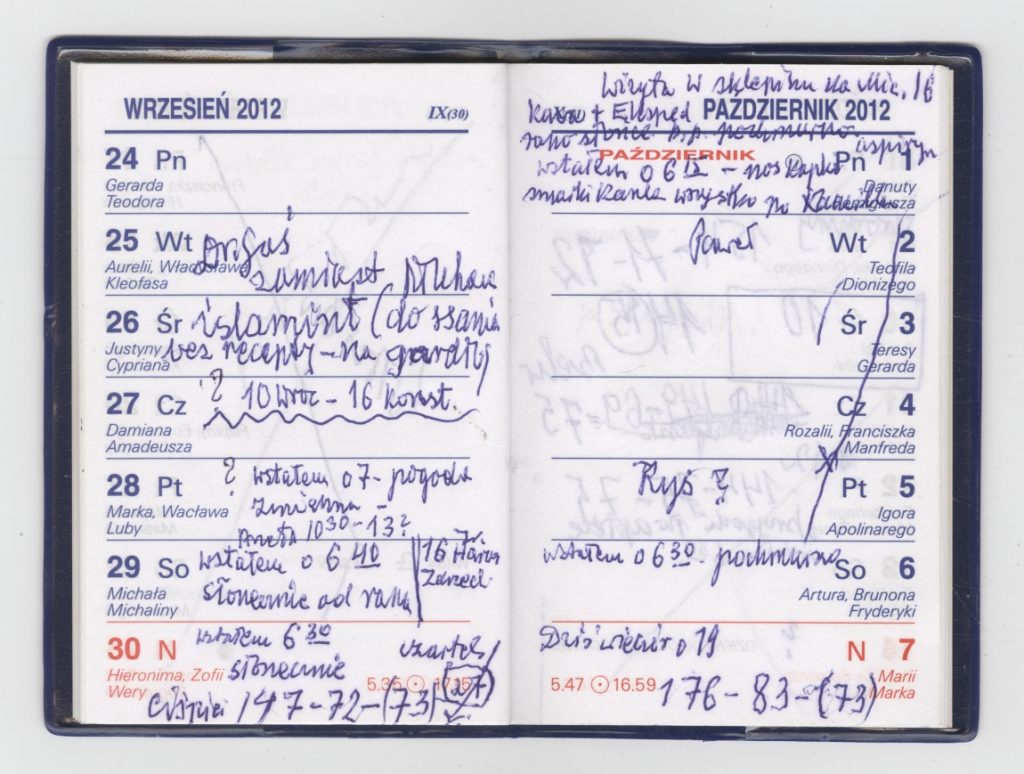 WRZESIEŃ 2012 IX(30)
24 Pn
Gerarda
Teodora
25 Wt
Aurelii, Władysława
Kleofasa
zamiast
26 Śr islamint (do ssania
Justyny bez recepty - na gardło)
Cypriana
? 10 wroc - 16 Konst.
27 Cz
Damiana
Amadeusza
? wstałem o 7 - pogoda
28 Pt zmienna -
Marka, Wacława
Luby
Aneta 10 30 - 13?
29 So wstałem o 6 40 16
Michała słonecznie od rana
Michaliny
30 N wstałem 6 30
Hieronima, Zofii słonecznie
Wery 5.35 17.15
147-72-(73)
Wizyta w sklepiku na Mic. 16
+ Eksped PAŹDZIERNIK 2012
rano słońce b.p. pochmurno aspiryn
PAŹDZIERNIK
wstałem o 6 15 - nos Pn 1
wszystko po
Danuty
Remigiusza
Paweł Wt 2
Teofila
Dionizego
Śr 3
Teresy
Gerarda
Cz 4
Rozalii, Franciszka
Manfreda
Ryś ? Pt 5
Igora
Apolinarego
wstałem o 6 30 pochmurno So 6
Artura, Brunona
Fryderyki
Dziś wieczór o 19
N 7
5.47 16.59 Marii
Marka
176-83-(73)